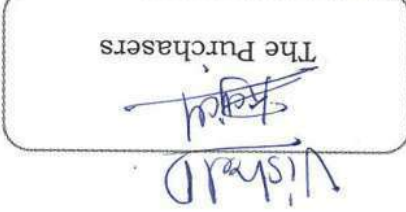 Vishal D
The Purchasers